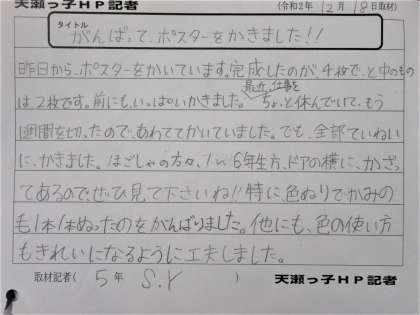 天瀬っ子HP記者
(令和2年 12月 18日取材)
タイトル
がんばって、ポスターをかきました!!
昨日から、ポスターをかいています。完成したのが、4枚で、と中のもの
は、2枚です。前にも、いっぱいかきました。ちょっと休んでいて、もう
最近、仕事を
1週間を切ったので、あわててかいていました。でも、全部ていねい
に、かきました。ほごしゃの方々、1〜6年生方、ドアの横に、かざっ
てあるので、ぜひ見て下さいね!!特に、色ぬりでかみの
毛1本1本ぬったのをがんばりました。他にも、色の使い方
もきれいになるように工夫しました。
取材記者( 5年 S.Y )
天瀬っ子HP記者